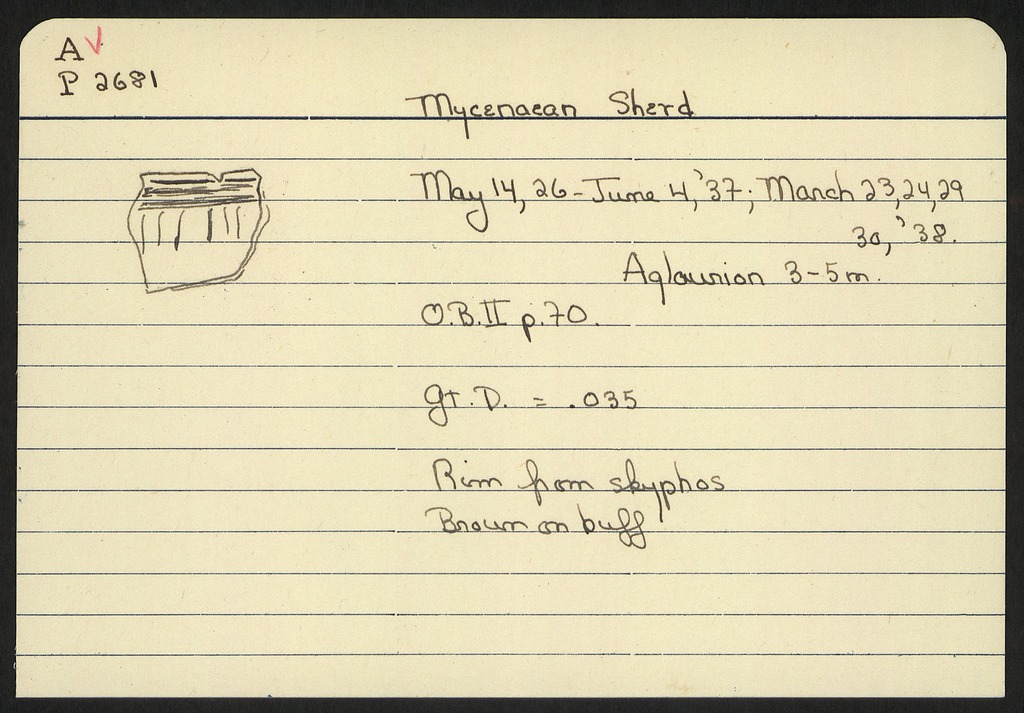 A ✓
P 2681
Mycenaean Sherd
May 14, 26 - June 4, '37; March 23, 24, 29
30, '38.
Aglaurion 3-5m.
O.B.II p.70.
gt. D. = .035
Rim from skyphos
Brown on buff